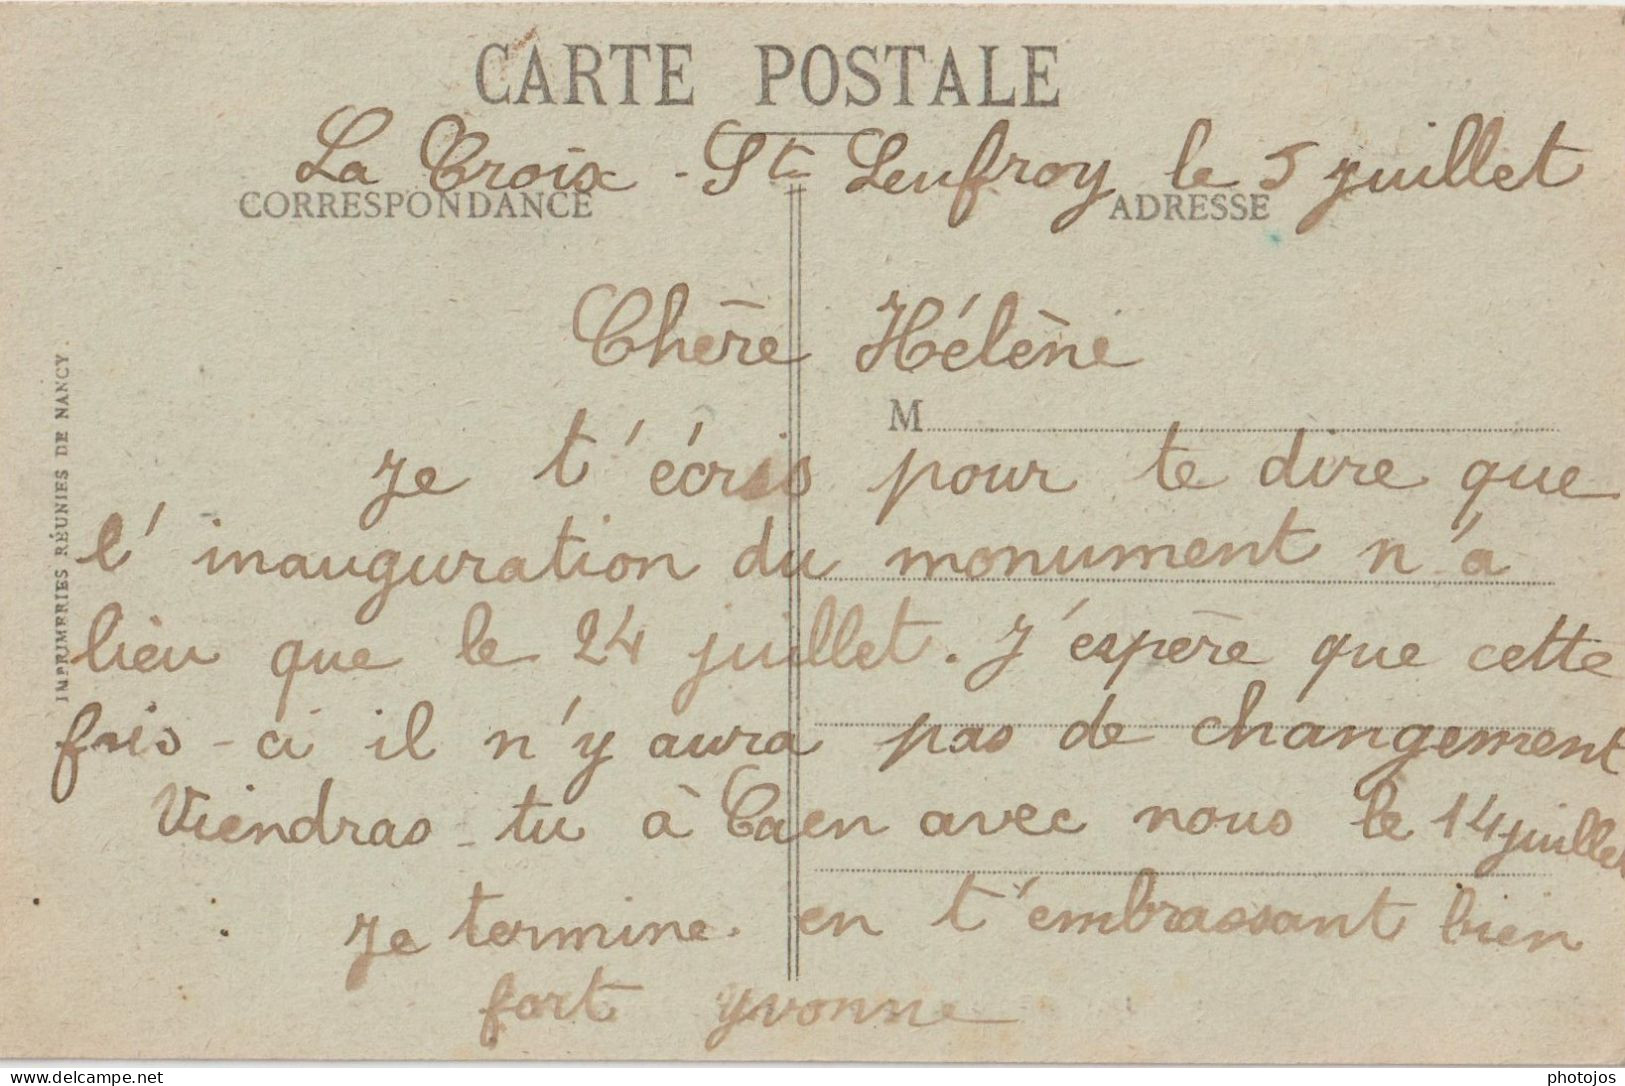 CARTE POSTALE
La Croix - St Leufroy le 5 juillet
CORRESPONDANCE
ADRESSE
Chère Hélène
M
Je t'écris pour te dire que
l'inauguration du monument n'a
lieu que le 24 juillet. J'espère que cette
fois-ci il n'y aura pas de changement
Viendras-tu à Caen avec nous le 14 juillet
Je termine en t'embrassant bien
fort Yvonne
IMPRIMERIES RÉUNIES DE NANCY
www.delcampe.net
photojos